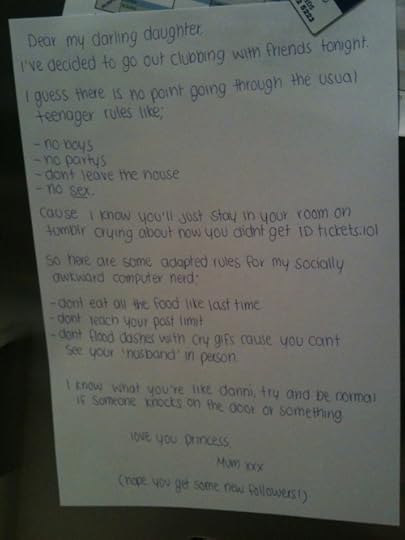 Dear my darling daughter,
I've decided to go out clubbing with friends tonight.
I guess there is no point going through the usual
teenager rules like;
- no boys
- no partys
- dont leave the house
- no sex.
cause I know you'll just stay in your room on
tumblr crying about how you didnt get 1D tickets.lol
So here are some adapted rules for my socially
awkward computer nerd:
- dont eat all the food like last time
- dont reach your post limit
- dont flood dashes with cry gifs cause you cant
see your 'husband' in person.
I know what you're like danni, try and be normal
if someone knocks on the door or something
love you princess,
Mum xxx
(hope you get some new followers!)